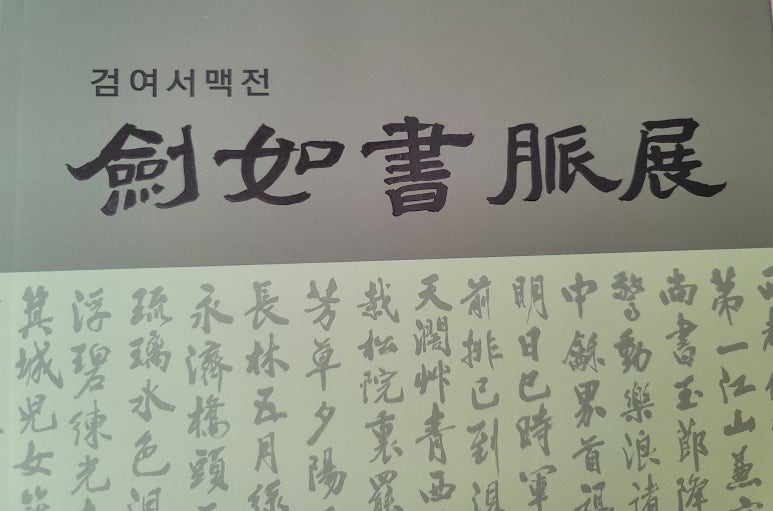 검여서맥전
劍如書脈展
第一江山
尚書玉節
驚動樂浪諸
中龢界首
明日巳時軍
前排已到
天濶艸青西
栽松院裏
芳草夕陽
長林五月
永濟橋頭
琉璃水色
浮碧練光
箕城兒女